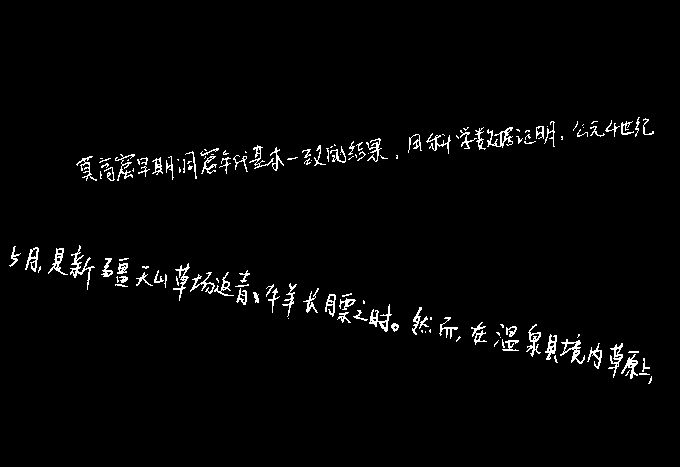 莫高窟早期洞窟年代基本一致的结果，用科学数据证明，公元4世纪
5月，是新疆天山草场返青、牛羊长膘之时。然而，在温泉县境内草原上，